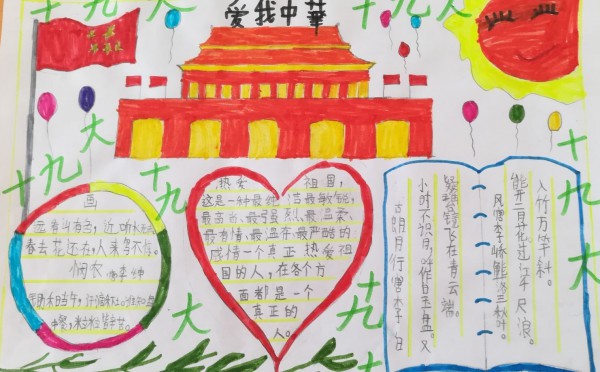 爱我中華
十九大
十九大
十九大
十九大
十九大
十九大
画
远看山有色，近听水无声
春去花还在，人来鸟不惊。
悯农
李绅
锄禾日当午，行
中餐，粒粒皆辛苦。
热爱祖国，
这是一种最纯洁、最敏
最高尚、最强烈、最温柔、
最有情、最温存、最严酷的
感情。一个真正热爱祖
国的人，在各个方
面都是一个
真正的
人。
古朗月行 唐 李白
小时不识月，呼作白玉盘。又
疑瑶台镜，飞在青云端。
风 唐 李峤 解落三秋叶。
能开二月花。过江千尺浪，
入竹万竿斜。